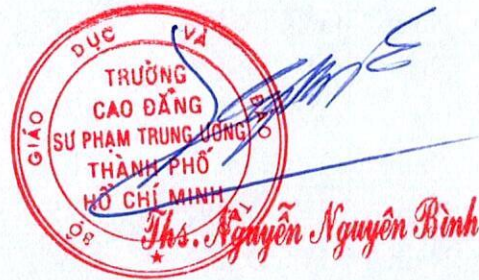 BỘ GIÁO DỤC VÀ ĐÀO
TRƯỜNG
CAO ĐẲNG
SƯ PHẠM TRUNG ƯƠNG
THÀNH PHỐ
HỒ CHÍ MINH
Ths. Nguyễn Nguyên Bình